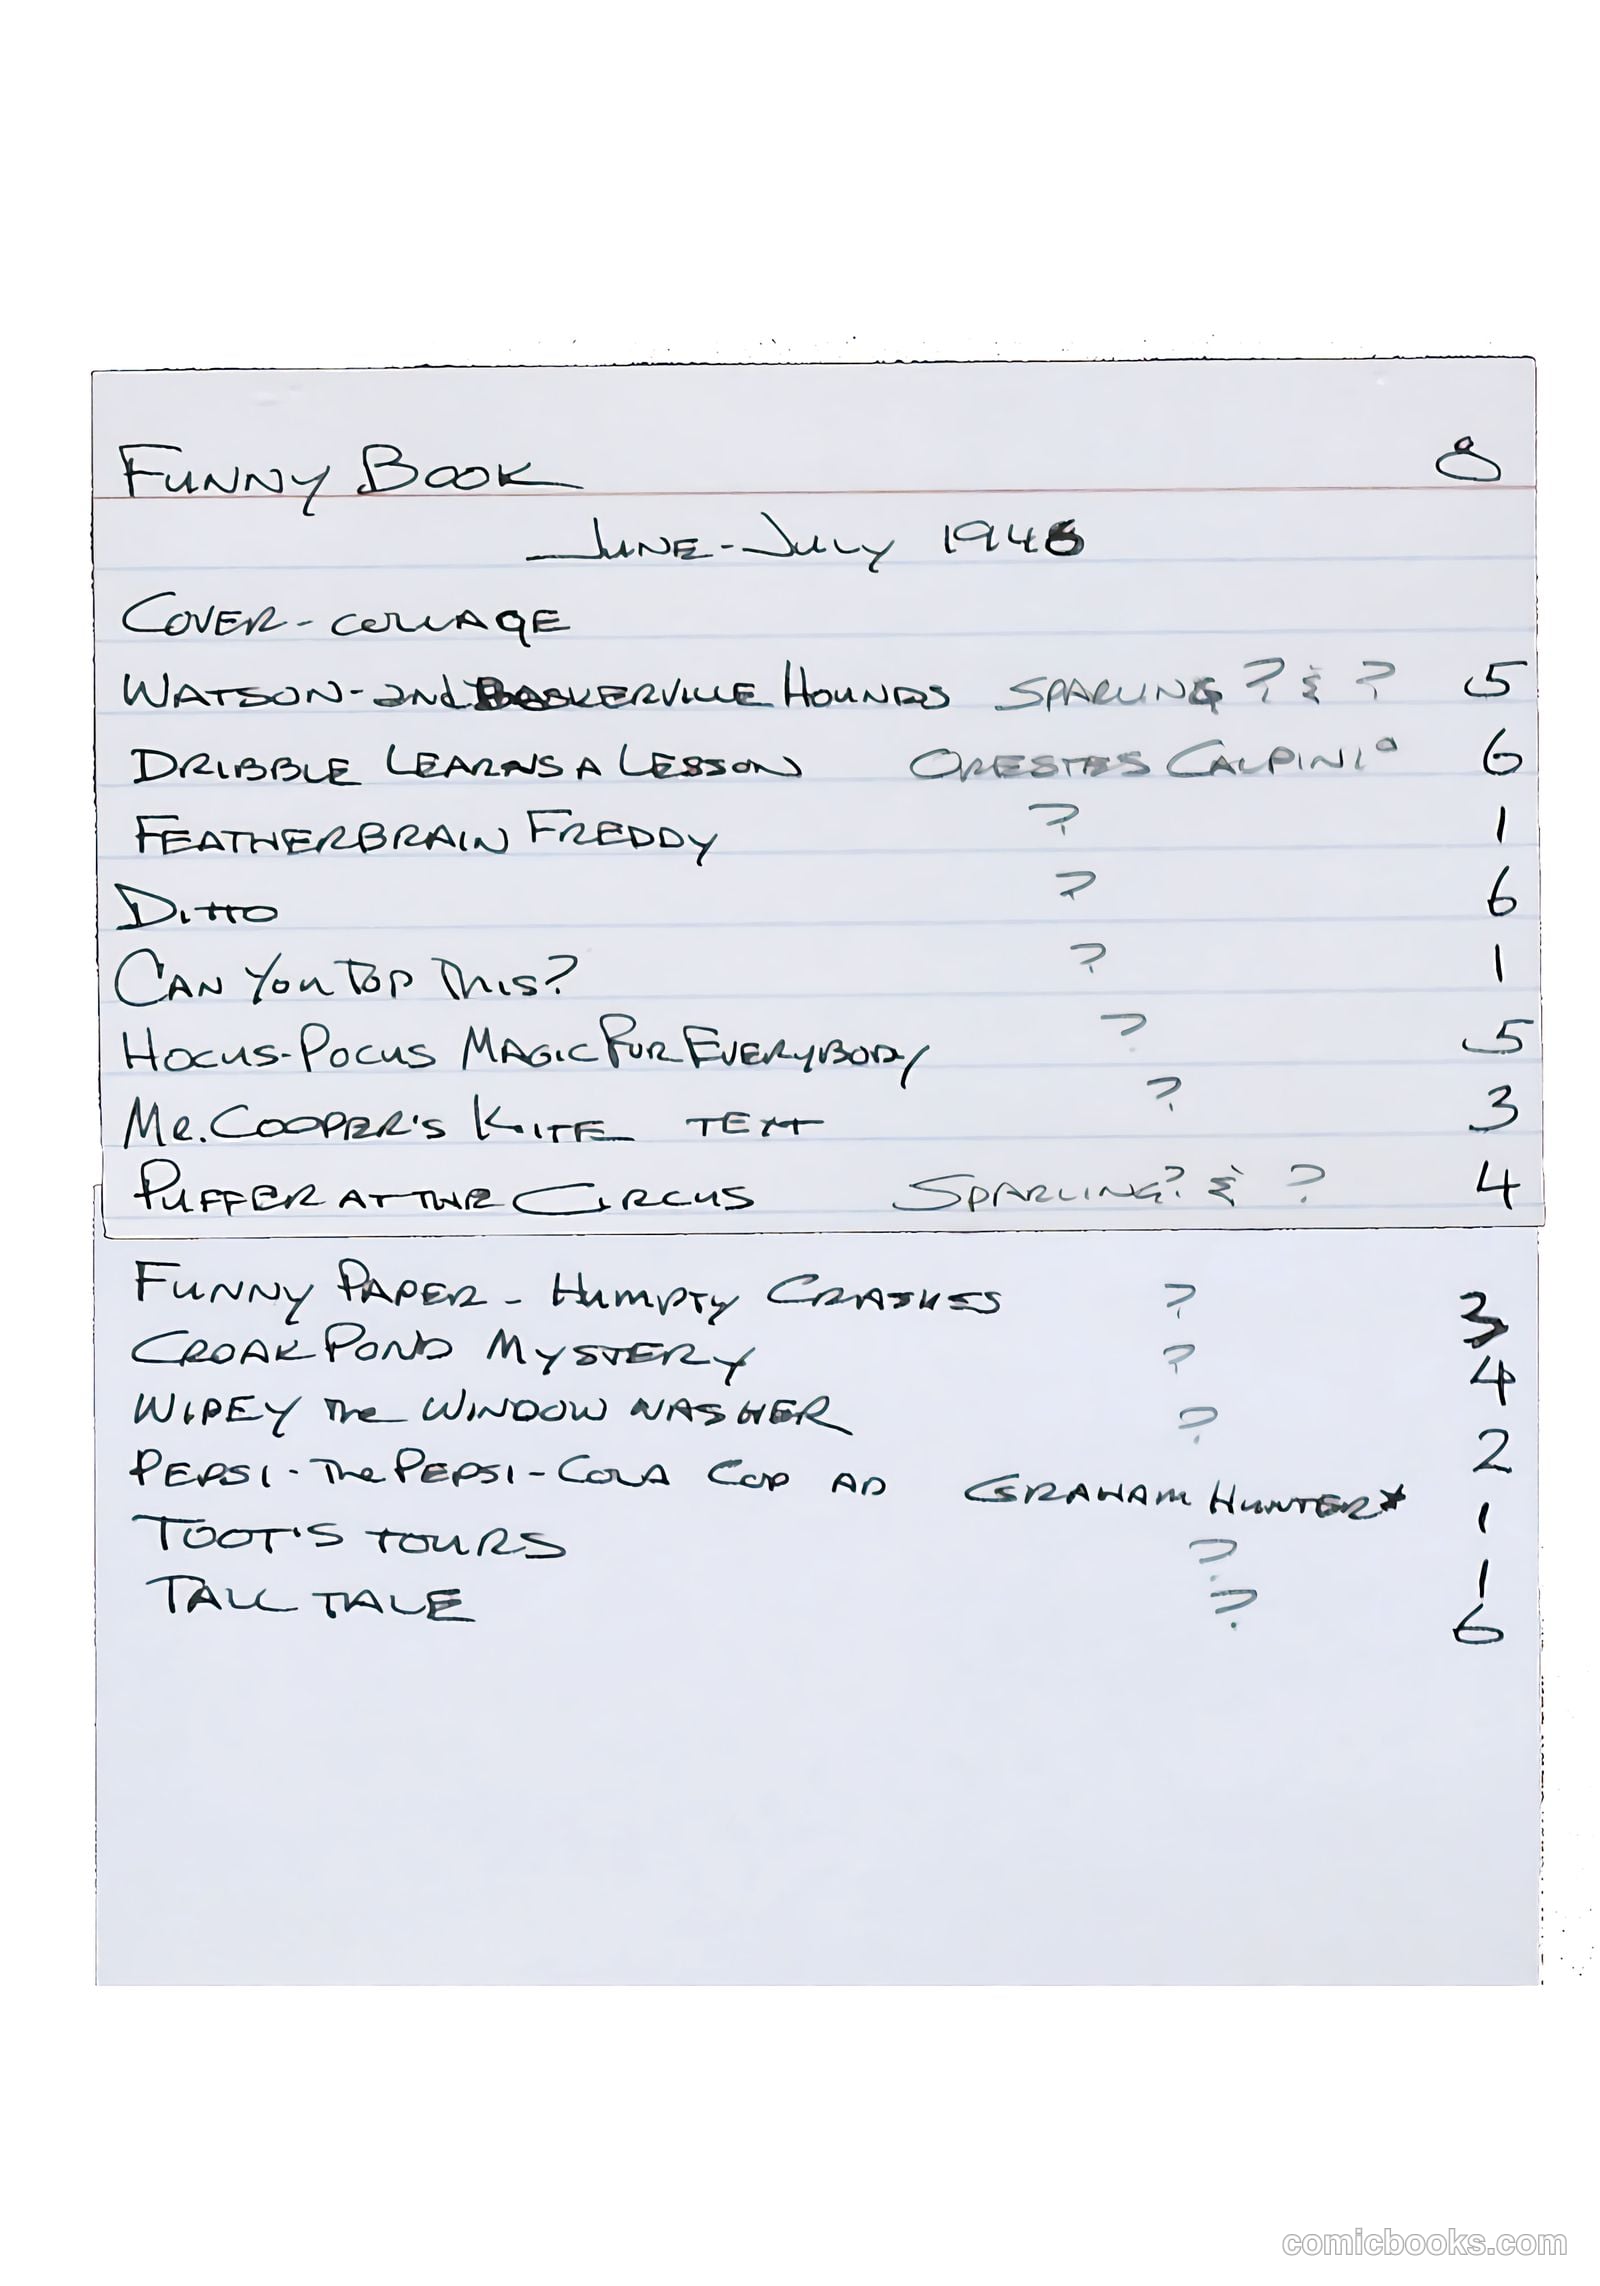 FUNNY BOOK 8
JUNE-JULY 1946
COVER - COLLAGE
WATSON - and BASKERVILLE HOUNDS SPARLING ? & ? 5
DRIBBLE LEARNS A LESSON ORESTES CALPINI° 6
FEATHERBRAIN FREDDY ? 1
DITTO ? 6
CAN YOU TOP THIS? ? 1
HOCUS-POCUS MAGIC FUR EVERYBODY ? 5
MR. COOPER'S KITE TEXT ? 3
PUFFER AT THE CIRCUS SPARLING? & ? 4
FUNNY PAPER - HUMPTY CRASHES ? 3
CROAK POND MYSTERY ? 4
WIPEY The WINDOW WASHER ? 2
PEPSI - The PEPSI-COLA COP AD GRAHAM HUNTER* 1
TOOT'S TOURS ? 1
TALL TALE ? 6
comicbooks.com